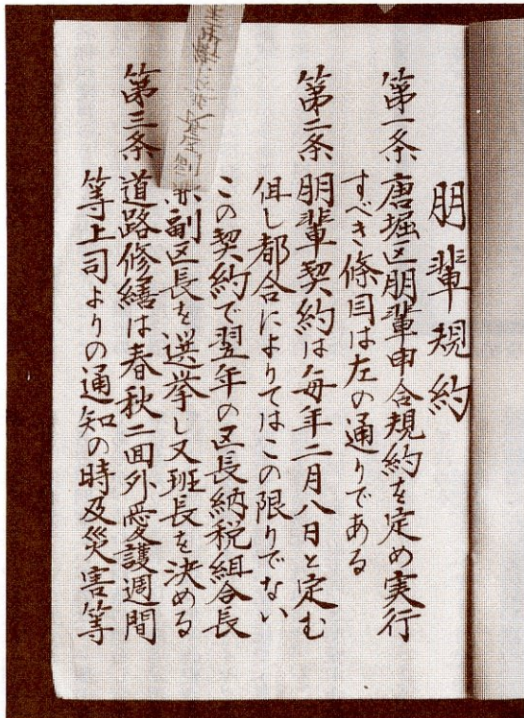 朋輩規約
第一条 唐堀区朋輩申合規約を定め実行
すべき條目は左の通りである
第二条 朋輩契約は毎年二月八日と定む
但し都合によりてはこの限りでない
この契約で翌年の区長納税組合長
副区長を選挙し又班長を決める
第三条 道路修繕は春秋二回外愛護週間
等上司よりの通知の時及災害等